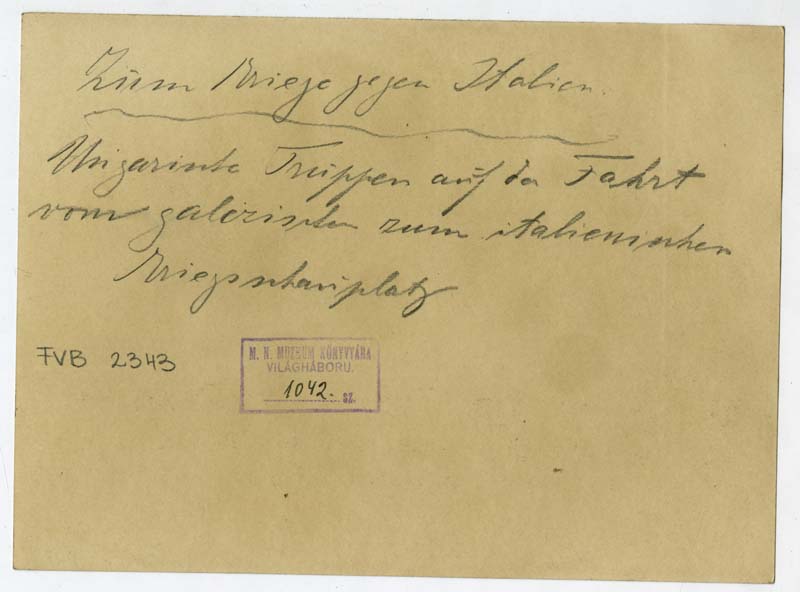 Zum Kriege gegen Italien.
Ungarische Truppen auf der Fahrt
vom galizischen zum italienischen
Kriegsschauplatz
FVB 2343
M. N. MUZEUM KÖNYVTÁRA
VILÁGHÁBORU.
1042. SZ.